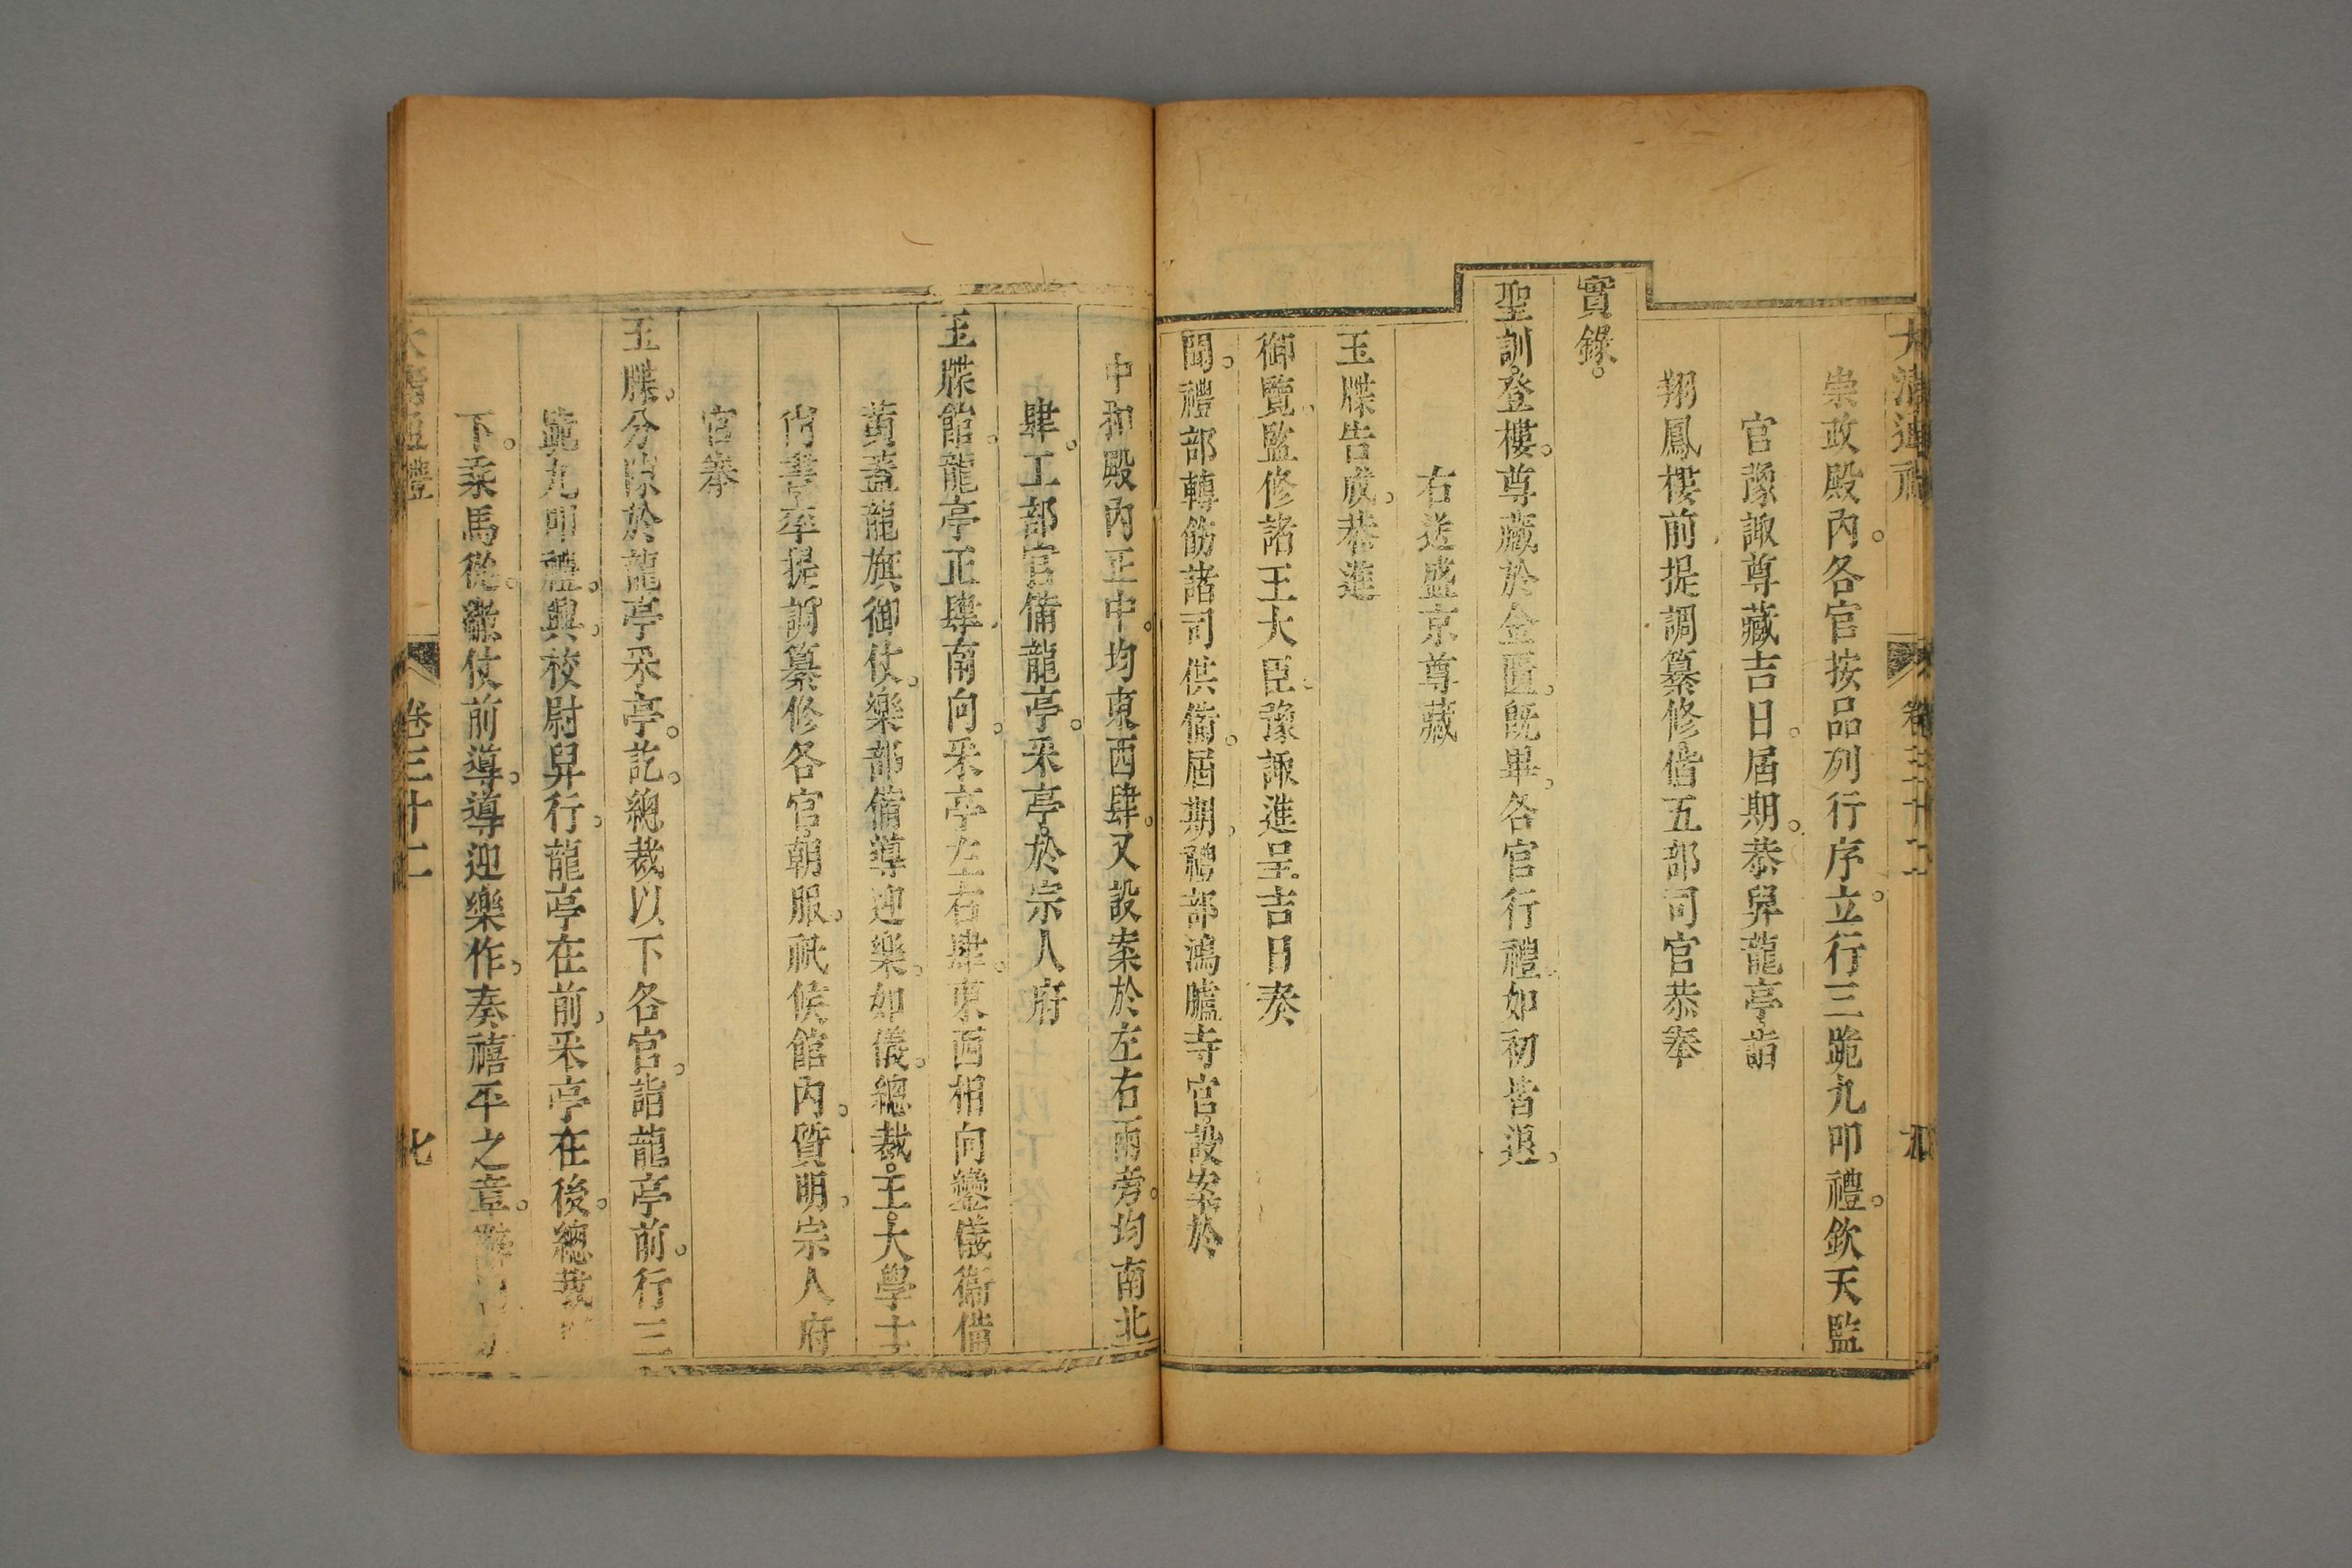 大清通禮 卷三十二
崇政殿內。各官按品列行序立。行三跪九叩禮。欽天監
官豫諏尊藏吉日。屆期。恭舁龍亭詣
翔鳳樓前。提調纂修偕五部司官恭奉
實錄。
聖訓。登樓。尊藏於金匱。旣畢。各官行禮如初。皆退。
右送盛京尊藏
玉牒告成。恭進
御覽。監修諸王大臣。豫諏進呈吉日。奏
聞。禮部轉飭諸司供備。屆期。禮部鴻臚寺官。設案於
中和殿內正中。均東西肆。又設案於左右兩旁。均南北
肆。工部官備龍亭。釆亭。於宗人府
玉牒館。龍亭正肆南向。釆亭左右肆。東西相向。鑾儀衞備
黃蓋龍旗御仗。樂部備導迎樂。如儀。總裁王。大學士
尚書率提調纂修各官。朝服。祇俟館內。質明。宗人府
官奉
玉牒。分陳於龍亭釆亭。訖。總裁以下各官。詣龍亭前。行三
跪九叩禮。興。校尉舁行。龍亭在前。釆亭在後。總裁
下。乘馬從。繼仗前導。導迎樂作。奏禧平之章。
大清通禮 卷三十二 七